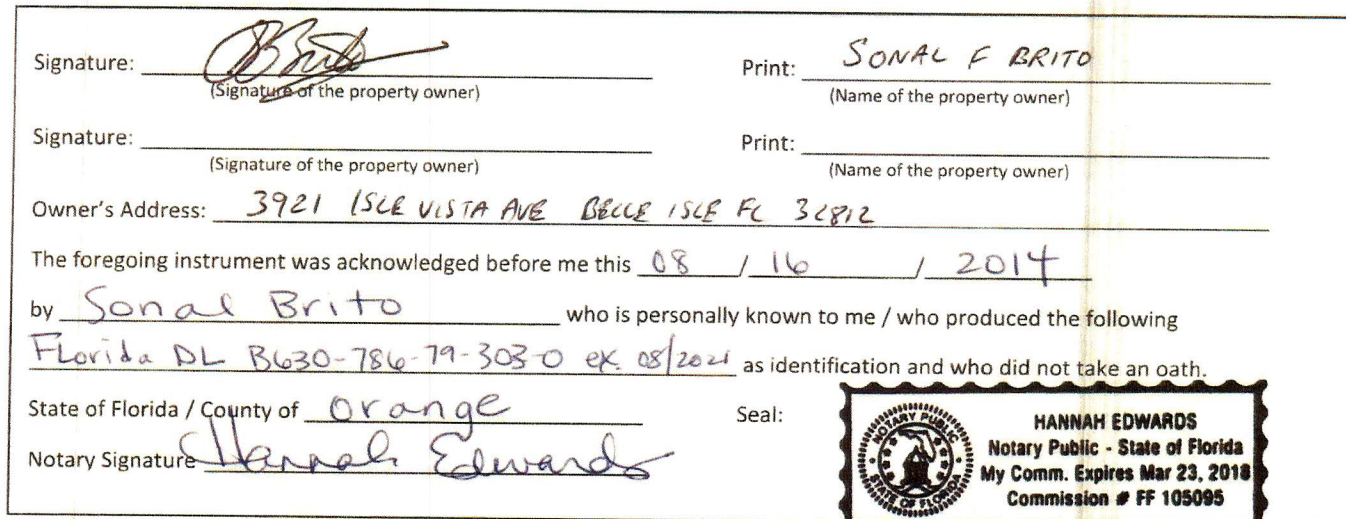 Signature: Brito Print: SONAL F BRITO
(Signature of the property owner) (Name of the property owner)
Signature: Print:
(Signature of the property owner) (Name of the property owner)
Owner's Address: 3921 ISLE VISTA AVE BELLE ISLE FL 32812
The foregoing instrument was acknowledged before me this 08 / 16 / 2014
by Sonal Brito who is personally known to me / who produced the following
Florida DL B630-786-79-303-0 ex. 08/2021 as identification and who did not take an oath.
State of Florida / County of Orange Seal:
Notary Signature Hannah Edwards
NOTARY PUBLIC
STATE OF FLORIDA
HANNAH EDWARDS
Notary Public - State of Florida
My Comm. Expires Mar 23, 2018
Commission # FF 105095